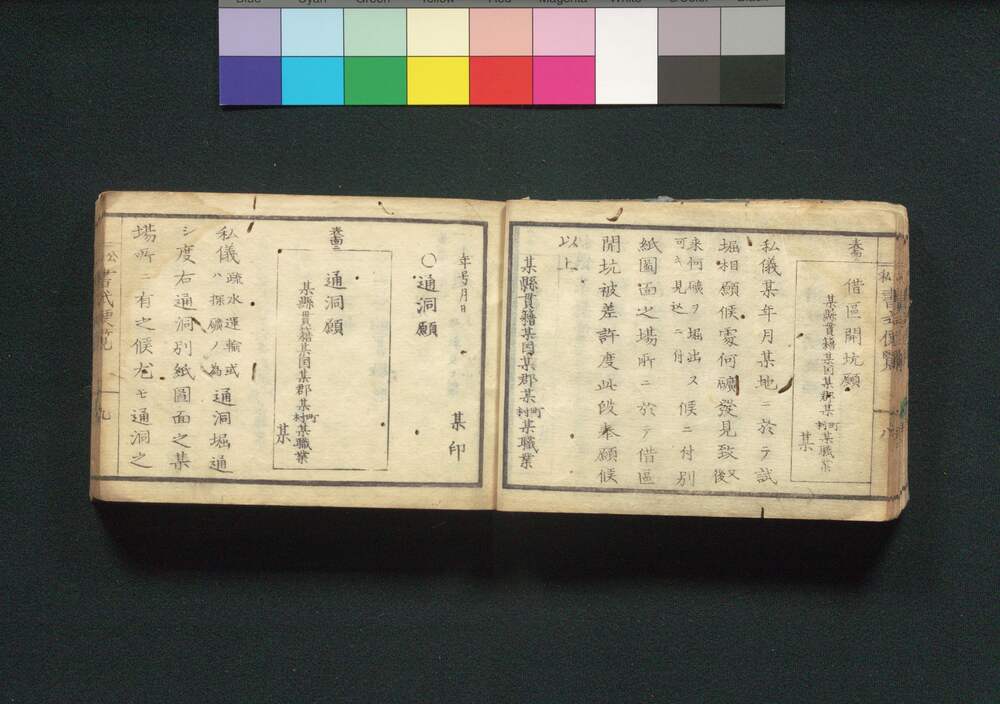 借區開坑願
某縣貫籍某国某郡某町村某職業
某
私儀某年月某地ニ於テ試
堀相願候處何礦發見致又後
来何礦ヲ堀出ス可キ見込ニ付候ニ付別
紙圖面之場所ニ於テ借區
開坑被差許度此段奉願候
以上
某縣貫籍某国某郡某町村某職業
年号月日
某印
〇通洞願
通洞願
某縣貫籍某国某郡某町村某職業
某
私儀疏水運輸或ハ探礦ノ為通洞堀通
シ度右通洞別紙圖面之某
場所ニ有之候尤モ通洞之
Blue Cyan Green Yellow Red Magenta White 3/Color Black